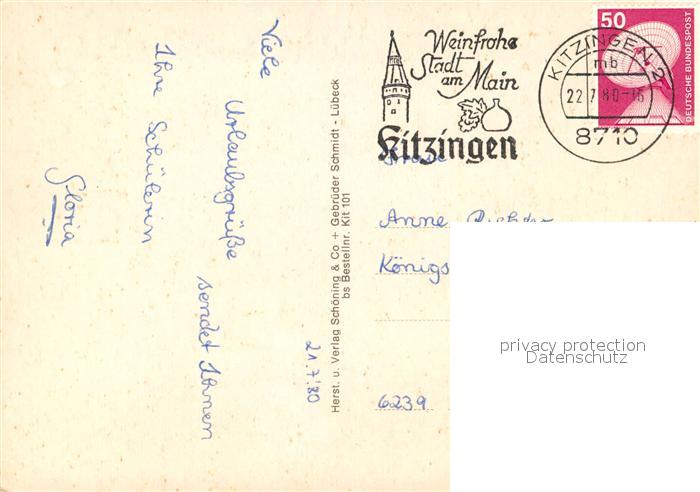 Viele
Urlaubsgrüße
sendet Ihnen
Ihre Schülerin
Gloria
21.7.'80
Herst. u. Verlag Schöning & Co + Gebrüder Schmidt - Lübeck
bs Bestellnr. Kit 101
Weinfrohe
Stadt
am Main
Kitzingen
KITZINGEN 2
mb
22.7.80-16
8710
50
DEUTSCHE BUNDESPOST
Anne
Königs
6239
privacy protection
Datenschutz